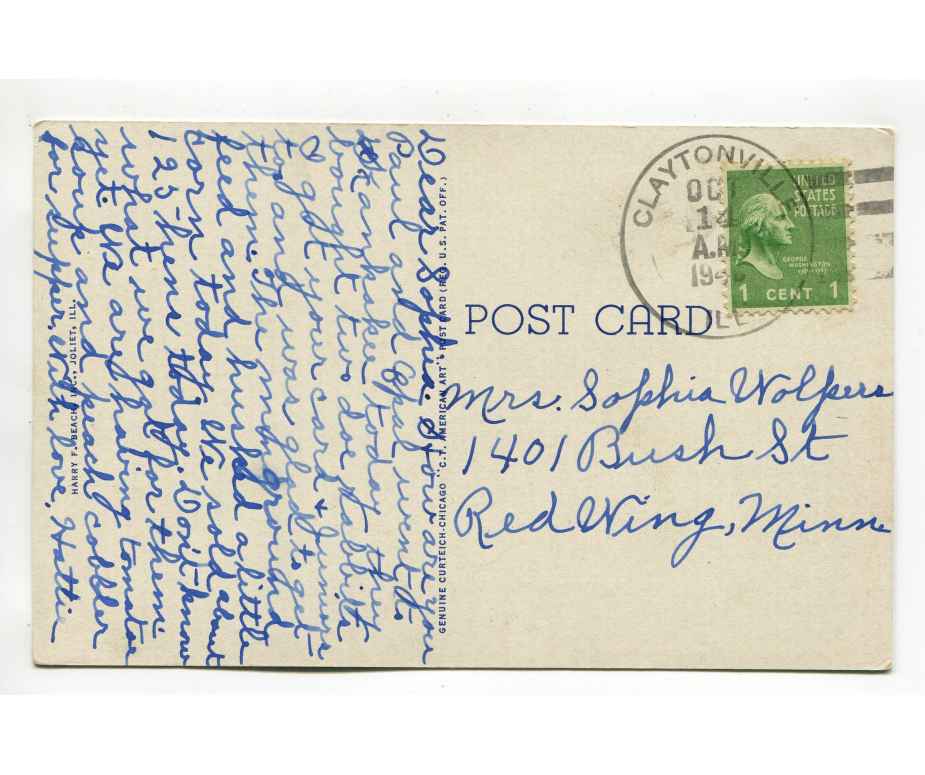 Dear Sophia: How are you
Paul and Opal went to
Kankakee today they
bought two doe rabbits
I got your card & Junior's
too and was glad to get
them. The men ground
feed and husked a little
corn today. We sold about
125 hens today. Don't know
what we got for them
yet. We are having tomatoe
soup and peach cobbler
for supper. With love, Hattie
HARRY F. BEACH, INC., JOLIET, ILL.
GENUINE CURTEICH-CHICAGO "C.T. AMERICAN ART" POST CARD (REG. U.S. PAT. OFF.)
POST CARD
CLAYTONVILLE
OCT
14
A.M.
194
ILL.
UNITED
STATES
POSTAGE
GEORGE
WASHINGTON
1 CENT 1
Mrs. Sophia Wolpers
1401 Bush St
Red Wing, Minn